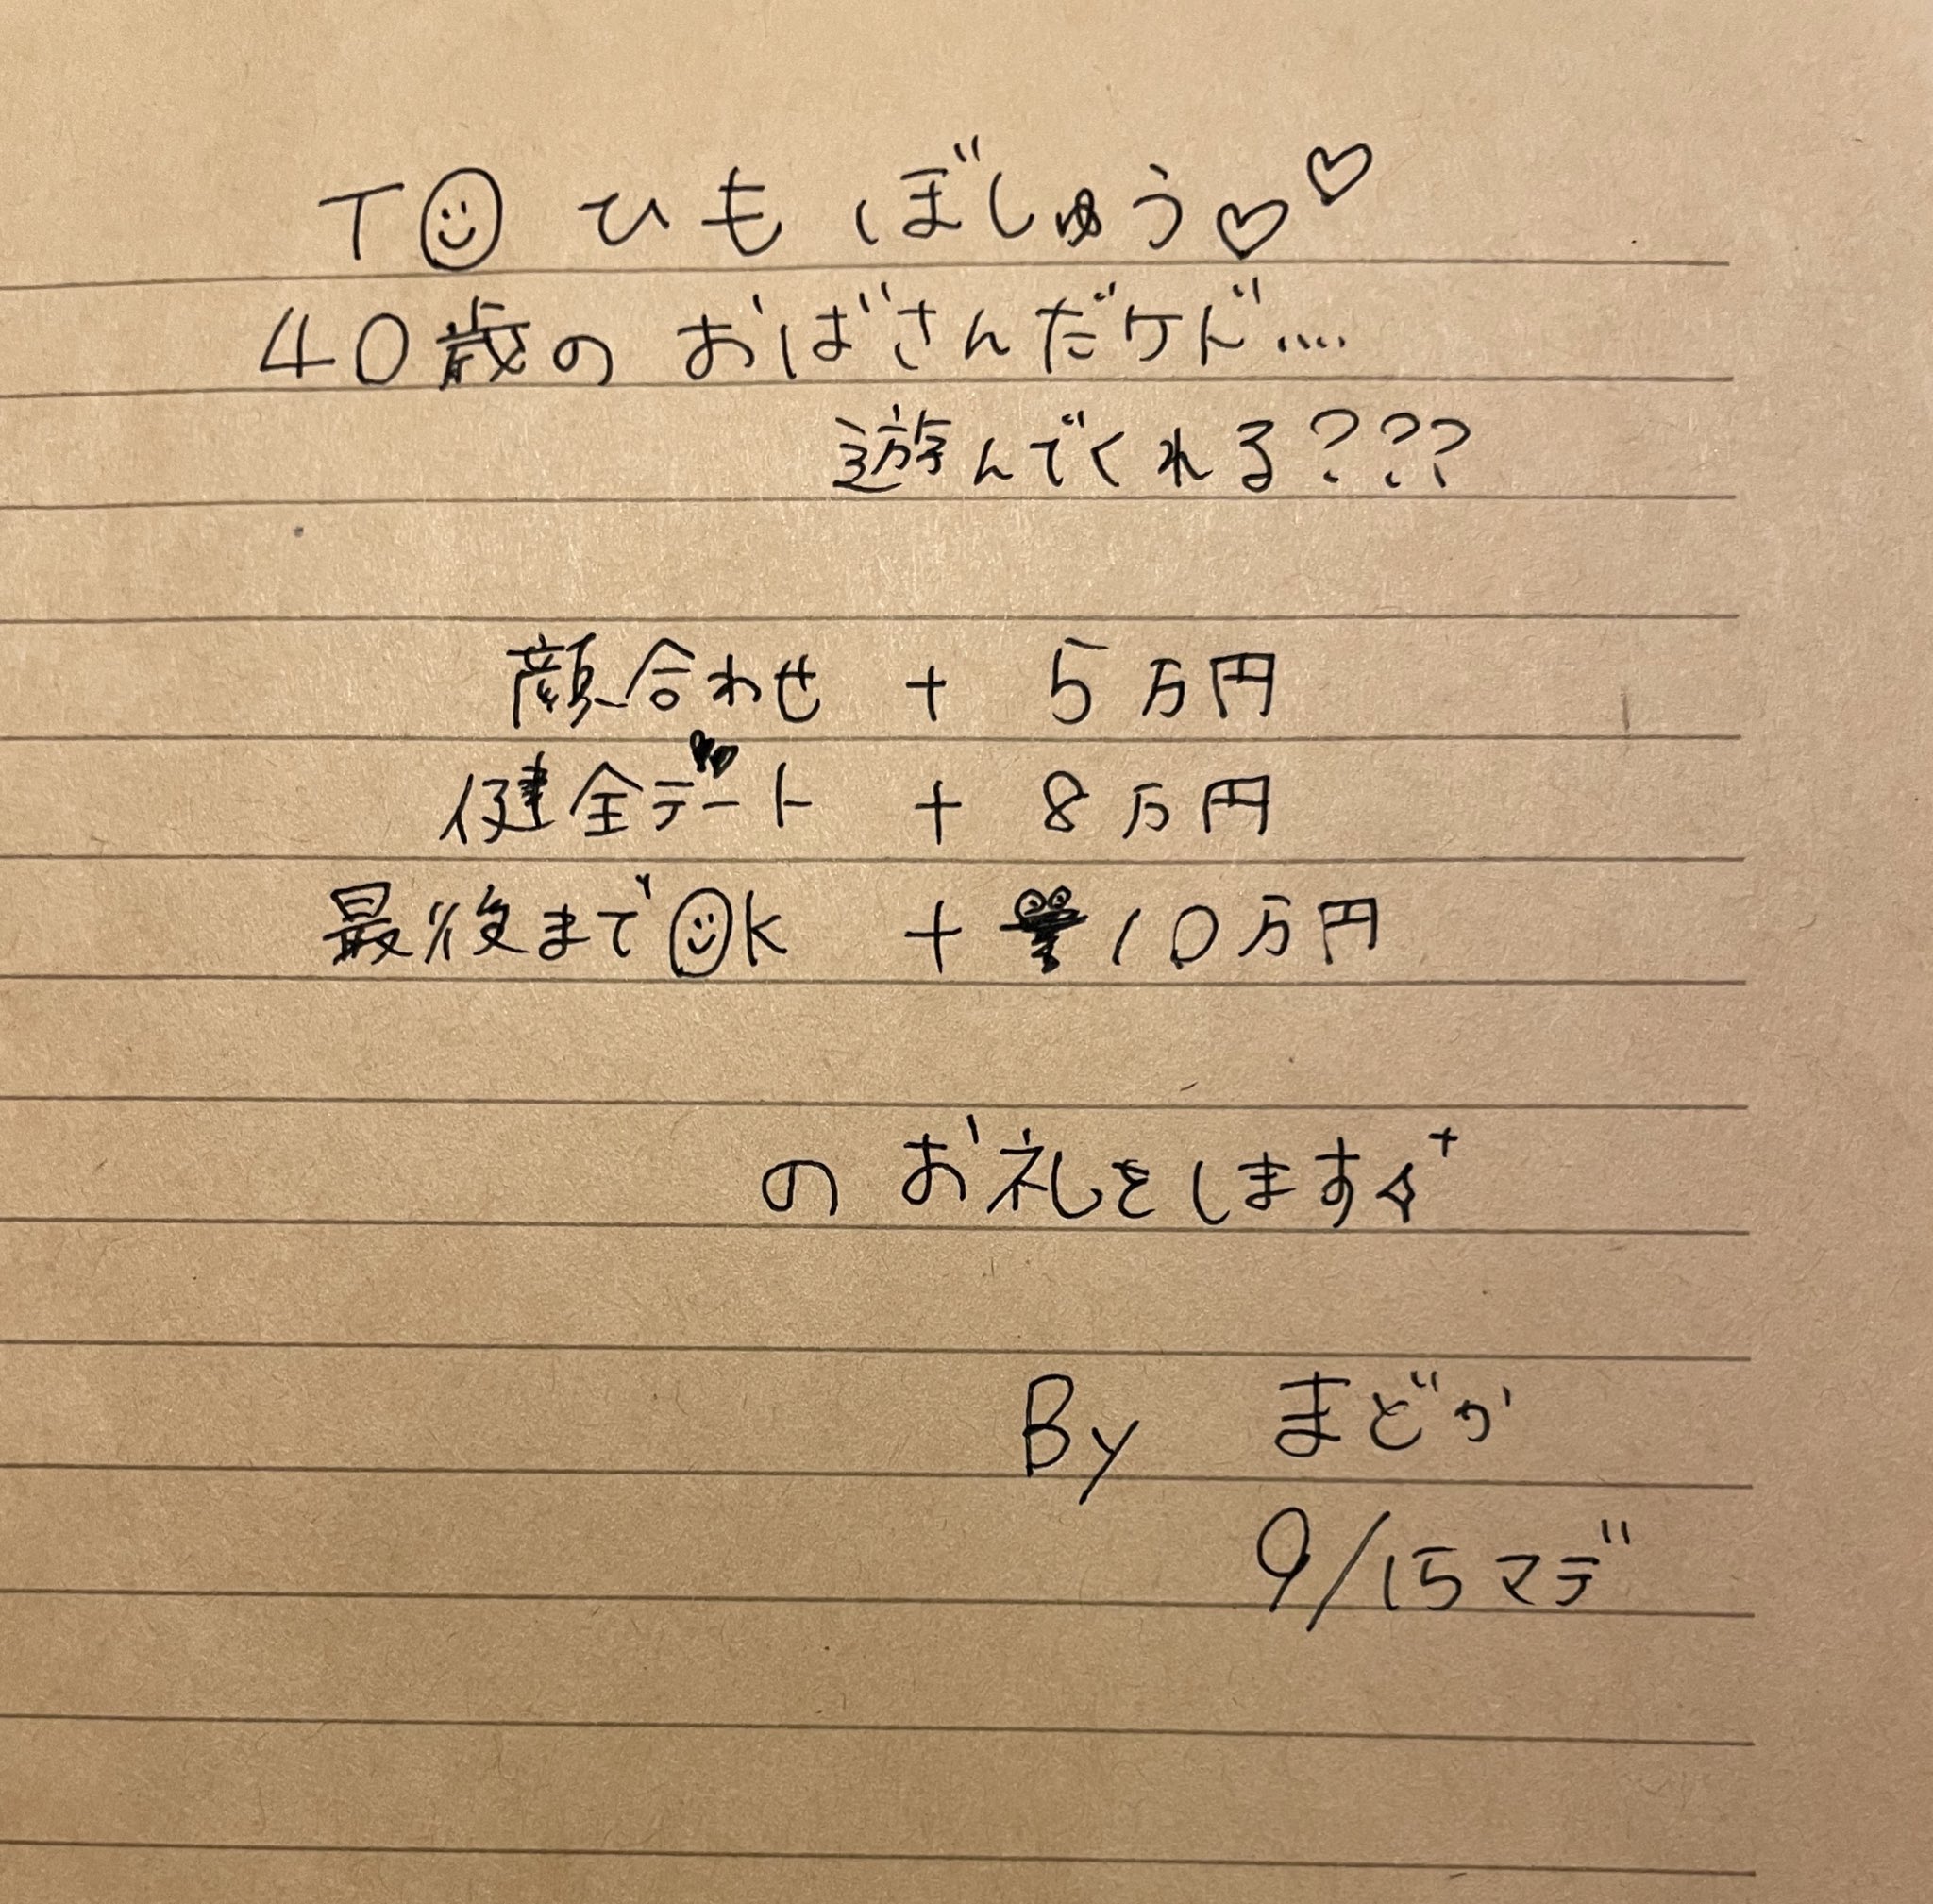 TO ひも ぼしゅう♡♡
40歳の おばさんだケド....
遊んでくれる???
顔合わせ + 5万円
健全デート + 8万円
最後までOK + 10万円
のお礼をします
By まどか
9/15マデ